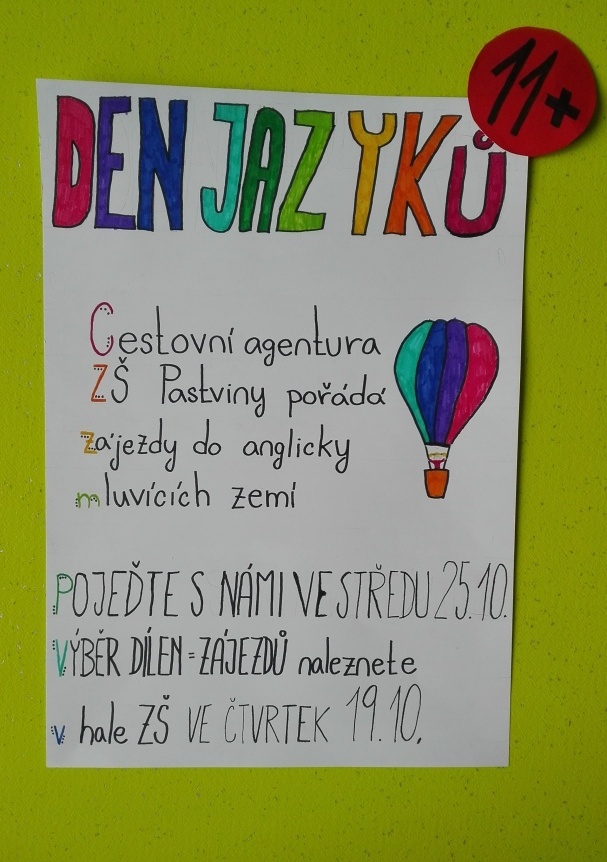 11+
DEN JAZYKŮ
Cestovní agentura
ZŠ Pastviny pořádá
zájezdy do anglicky
mluvících zemí
POJEĎTE S NÁMI VE STŘEDU 25.10.
VÝBĚR DÍLEN = ZÁJEZDŮ naleznete
v hale ZŠ VE ČTVRTEK 19.10.